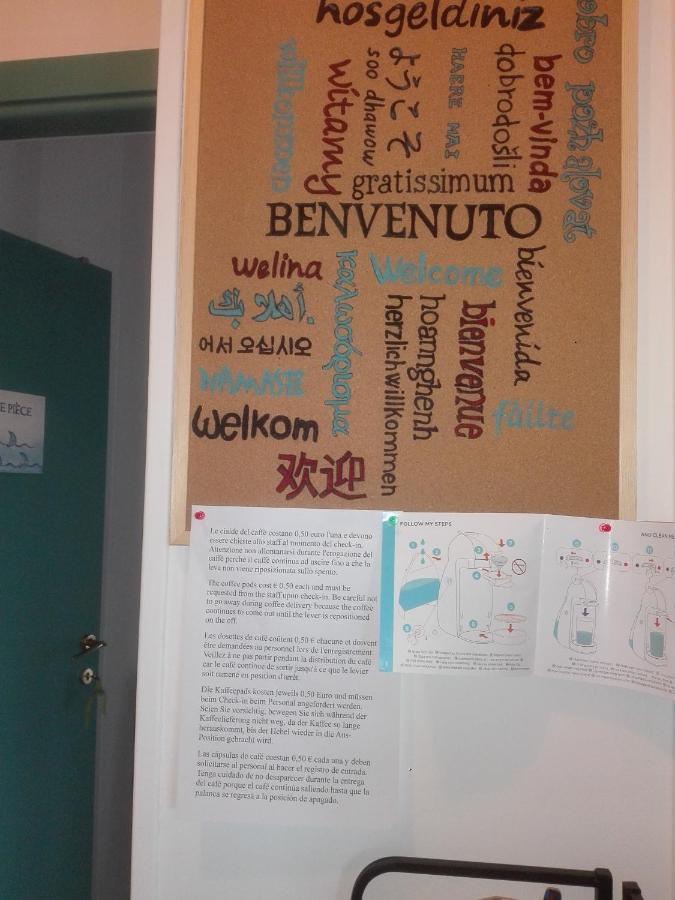 hoşgeldiniz
willkommen
witamy
soo dhawow
ようこそ
HAERE MAI
dobrodošli
bem-vinda
dobro pozhalovat
gratissimum
BENVENUTO
welina
Welcome
bienvenida
καλωσόρισμα
أهلا بك
herzlich willkommen
hoannghenh
bienvenue
어서 오십시오
NAMASTE
fáilte
welkom
欢迎
E PIÈCE
Le cialde del caffè costano 0,50 euro l'una e devono
essere chieste allo staff al momento del check-in.
Attenzione non allontanarsi durante l'erogazione del
caffè perché il caffè continua ad uscire fino a che la
leva non viene riposizionata sullo spento.
The coffee pods cost € 0,50 each and must be
requested from the staff upon check-in. Be careful not
to go away during coffee delivery because the coffee
continues to come out until the lever is repositioned
on the off.
Les dosettes de café coûtent 0,50 € chacune et doivent
être demandées au personnel lors de l'enregistrement
Veillez à ne pas partir pendant la distribution du café
car le café continue de sortir jusqu'à ce que le levier
soit ramené en position d'arrêt.
Die Kaffeepads kosten jeweils 0,50 Euro und müssen
beim Check-in beim Personal angefordert werden.
Seien Sie vorsichtig, bewegen Sie sich während der
Kaffeelieferung nicht weg, da der Kaffee so lange
herauskommt, bis der Hebel wieder in die Aus-
Position gebracht wird.
Las cápsulas de café cuestan 0,50 € cada una y deben
solicitarse al personal al hacer el registro de entrada.
Tenga cuidado de no desaparecer durante la entrega
del café porque el café continúa saliendo hasta que la
palanca se regresa a la posición de apagado.
FOLLOW MY STEPS
AND CLEAN ME